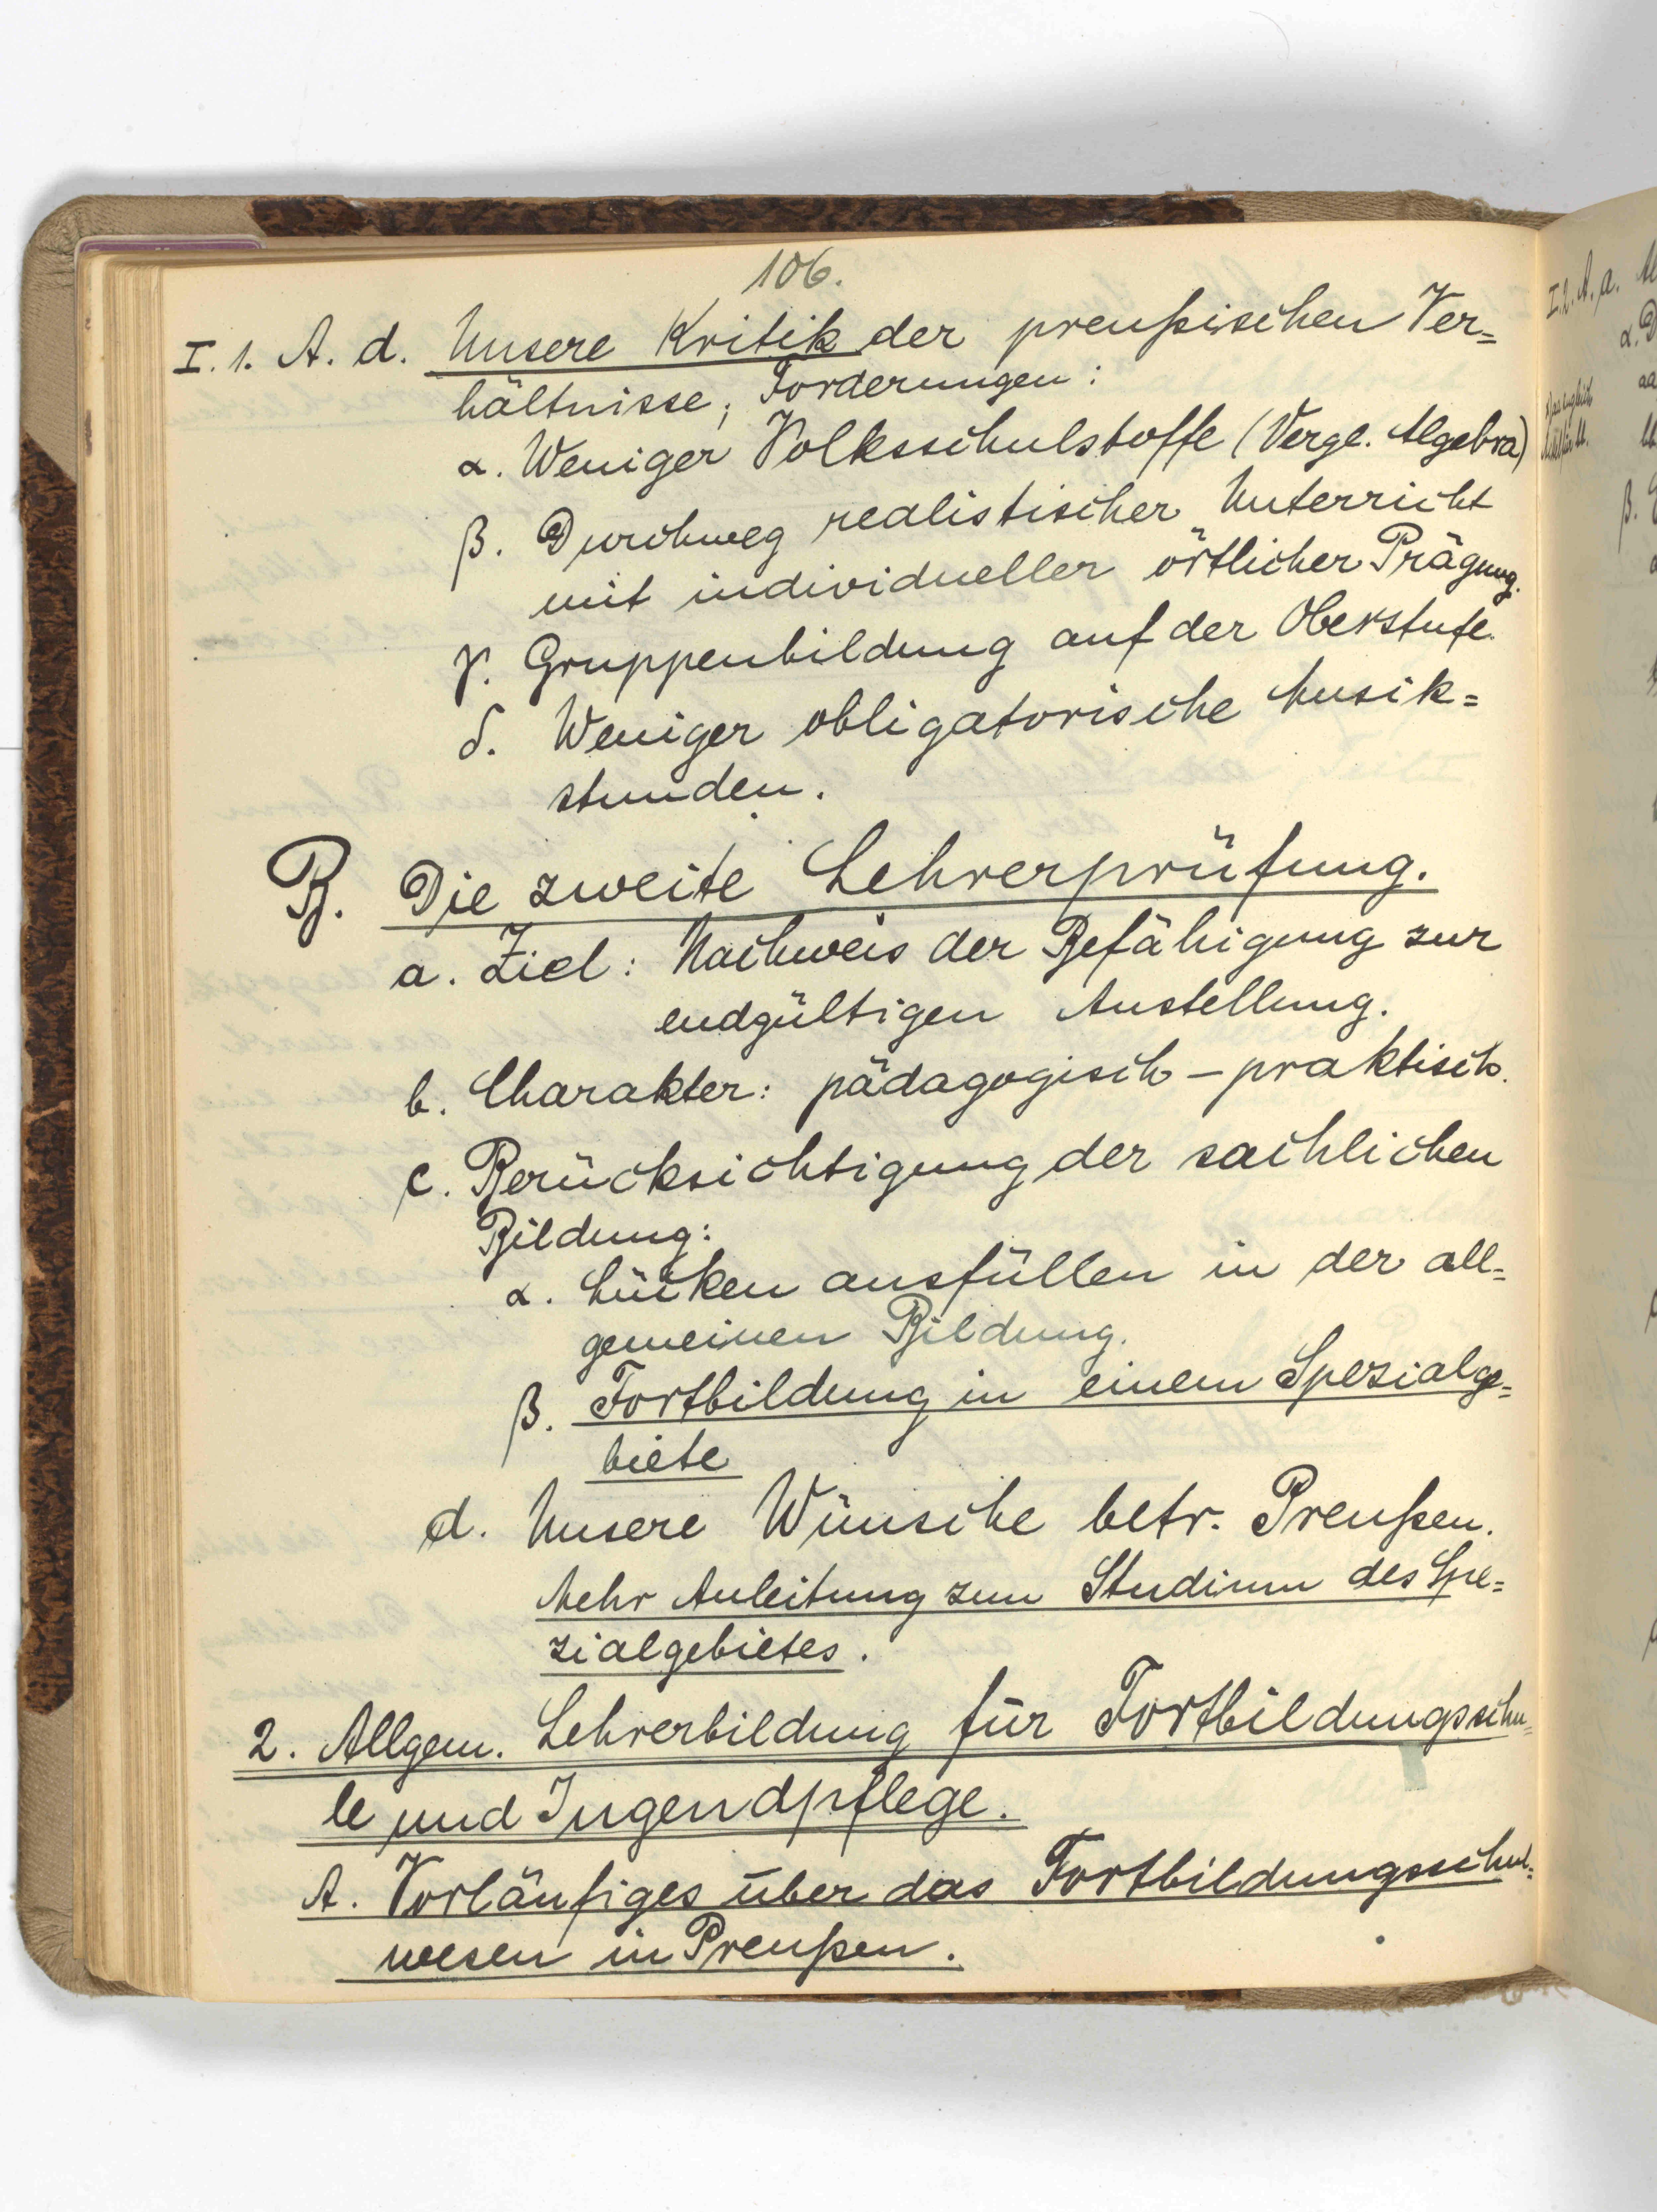 106.
I. 1. A. d. Unsere Kritik der preußischen Ver=
hältnisse; Forderungen:
α. Weniger Volksschulstoffe (Vergl. Algebra)
β. Durchweg realistischer Unterricht
mit individueller örtlicher Prägung.
γ. Gruppenbildung auf der Oberstufe.
δ. Weniger obligatorische Musik=
stunden.
B. Die zweite Lehrerprüfung.
a. Ziel: Nachweis der Befähigung zur
endgültigen Anstellung.
b. Charakter: pädagogisch - praktisch.
c. Berücksichtigung der sachlichen
Bildung:
α. Lücken ausfüllen in der all=
gemeinen Bildung.
β. Fortbildung in einem Spezialge=
biete
d. Unsere Wünsche betr. Preußen.
Mehr Anleitung zum Studium des Spe=
zialgebietes.
2. Allgem. Lehrerbildung für Fortbildungsschu=
le und Jugendpflege.
A. Vorläufiges über das Fortbildungsschul=
wesen in Preußen.
I. 2. A. a.
α. D
aa
β.